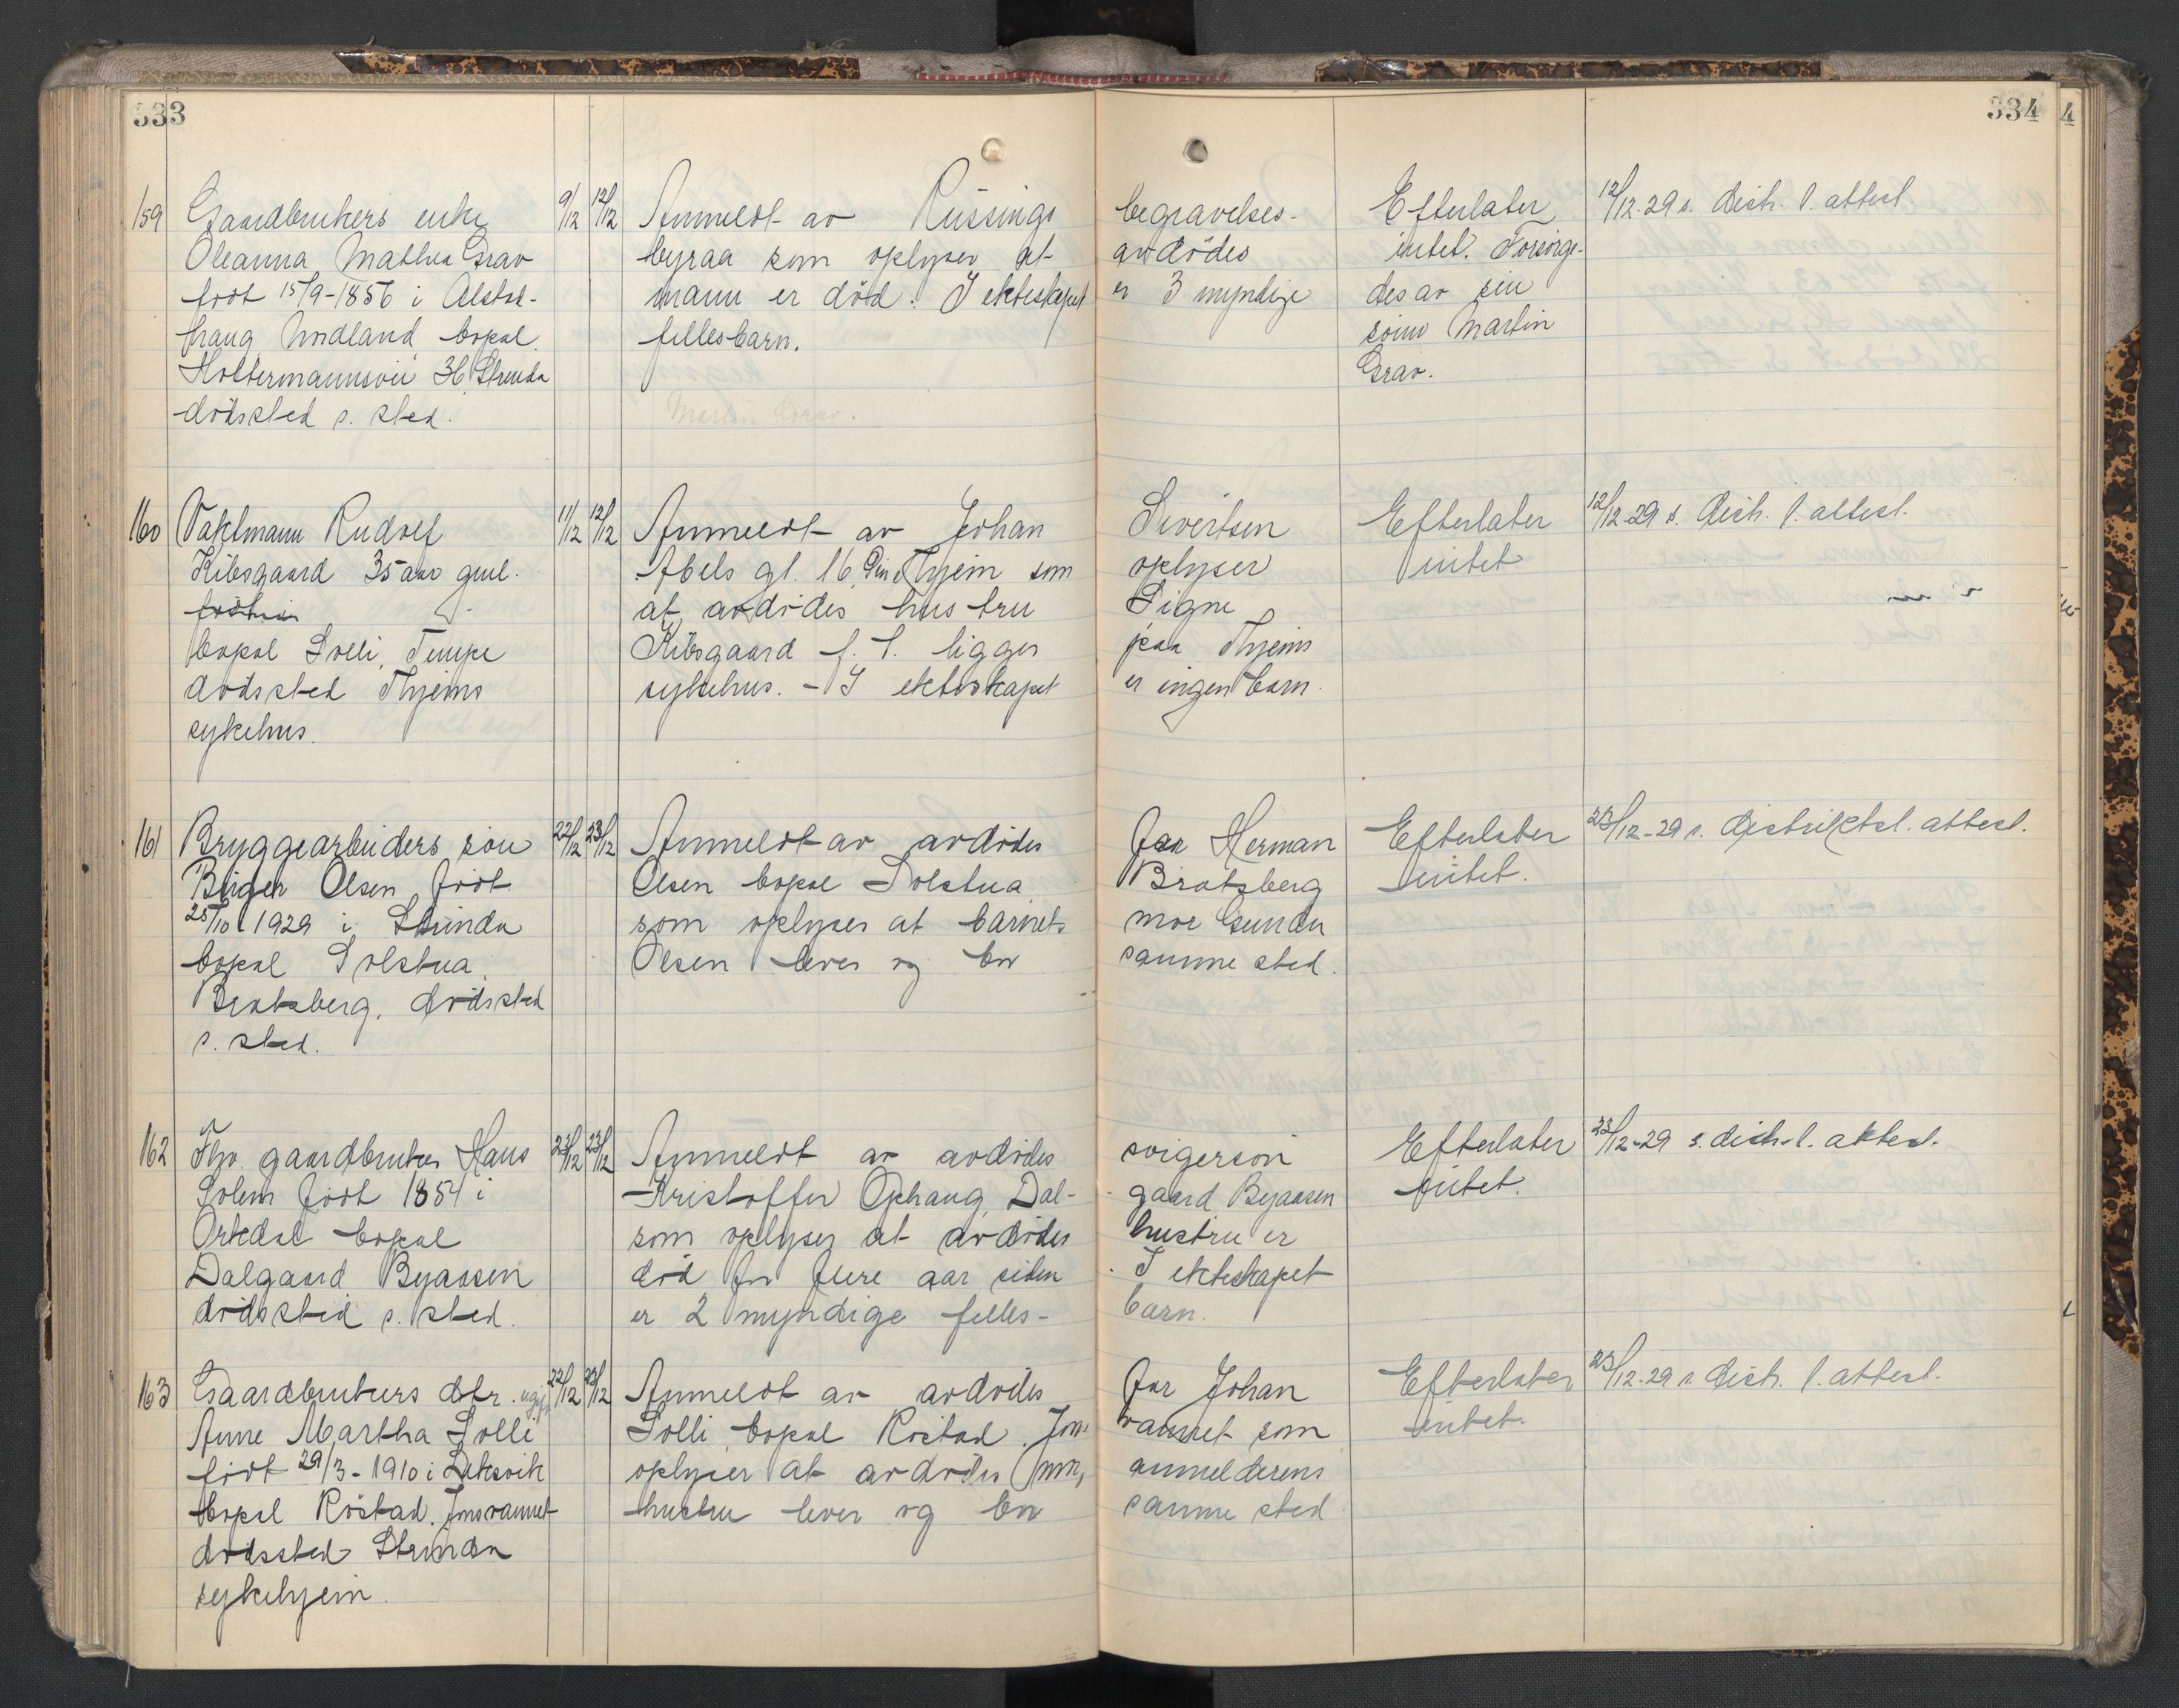 333
334
4
159
Gaardbrukers enke
Oleanna Mathea Grav
født 15/9-1856 i Alstad-
haug Nordland bopæl
Holtermannsvei 36 Strinda
dödssted s. sted.
9/12
12/12
Anmeldt av Rüssings begravelses-
byraa som oplyser at avdödes
mann er död. I ekteskapet er 3 myndige
fellesbarn.
Martin Grav.
Efterlater
intet. Forsörge-
des av sin
sönn Martin
Grav.
12/12-29 s. distr. l. attest.
160
Vaktmann Rudolf
Kibsgaard 35 aar gml.
bopæl Solli, Tempe
dödssted Thjems
sykehus.
11/12
12/12
Anmeldt av Johan Sivertsen
Abels gt. 16 Thjem som oplyser
at avdödes hustru Signe
Kibsgaard f. T. ligger paa Thjems
sykehus. - I ekteskapet er ingen barn.
Efterlater
intet
12/12-29 s. distr. l. attest.
161
Bryggearbeiders sön
Birger Olsen födt
25/10 1929 i Strinda
bopæl Solstua
Bratsberg. dödssted
s. sted.
22/12
23/12
Anmeldt av avdödes far Herman
Olsen bopæl Solstua Bratsberg
som oplyser at barnets mor Gunda
Olsen lever og bor samme sted.
Efterlater
intet.
23/12-29 s. distriktsl. attest.
162
Fhv. gaardbruker Hans
Solem födt 1854 i
Orkdal bopæl
Dalgaard Byaasen
dödssted s. sted.
23/12
23/12
Anmeldt av avdödes svigersön
Kristoffer Ophaug, Dal- gaard Byaasen
som oplyser at avdödes hustru er
död for flere aar siden. I ekteskapet
er 2 myndige felles- barn.
Efterlater
intet.
23/12-29 s. distr. l. attest.
163
Gaardbrukers dtr. ugift
Anne Martha Solli
födt 29/3-1910 i Leksvik
bopæl Röstad. Jonsvannet
dödssted Strinda
sykehjem.
22/12
23/12
Anmeldt av avdödes far Johan
Solli, bopæl Röstad. Jons- vannet som
oplyser at avdödes mor, anmelderens
hustru lever og bor samme sted
Efterlater
intet.
23/12-29 s. distr. l. attest.